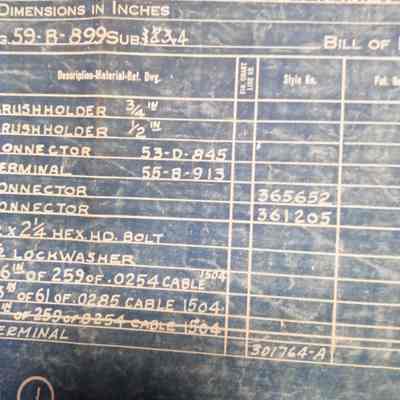 DIMENSIONS IN INCHES
G. 59-B-899 SUB. 3 4
BILL OF
Description-Material-Ref. Dwg.
Style No.
Pat.
RUSHHOLDER 3/4 IN
RUSHHOLDER 1/2 IN
ONNECTOR 53-D-845
ERMINAL 55-B-913
ONNECTOR 365652
ONNECTOR 361205
X 2 1/4 HEX. HD. BOLT
LOCKWASHER
6 IN OF 259 OF .0254 CABLE 1504
IN OF 61 OF .0285 CABLE 1504
IN OF 259 OF .0254 CABLE 1504
ERMINAL 301764-A
1